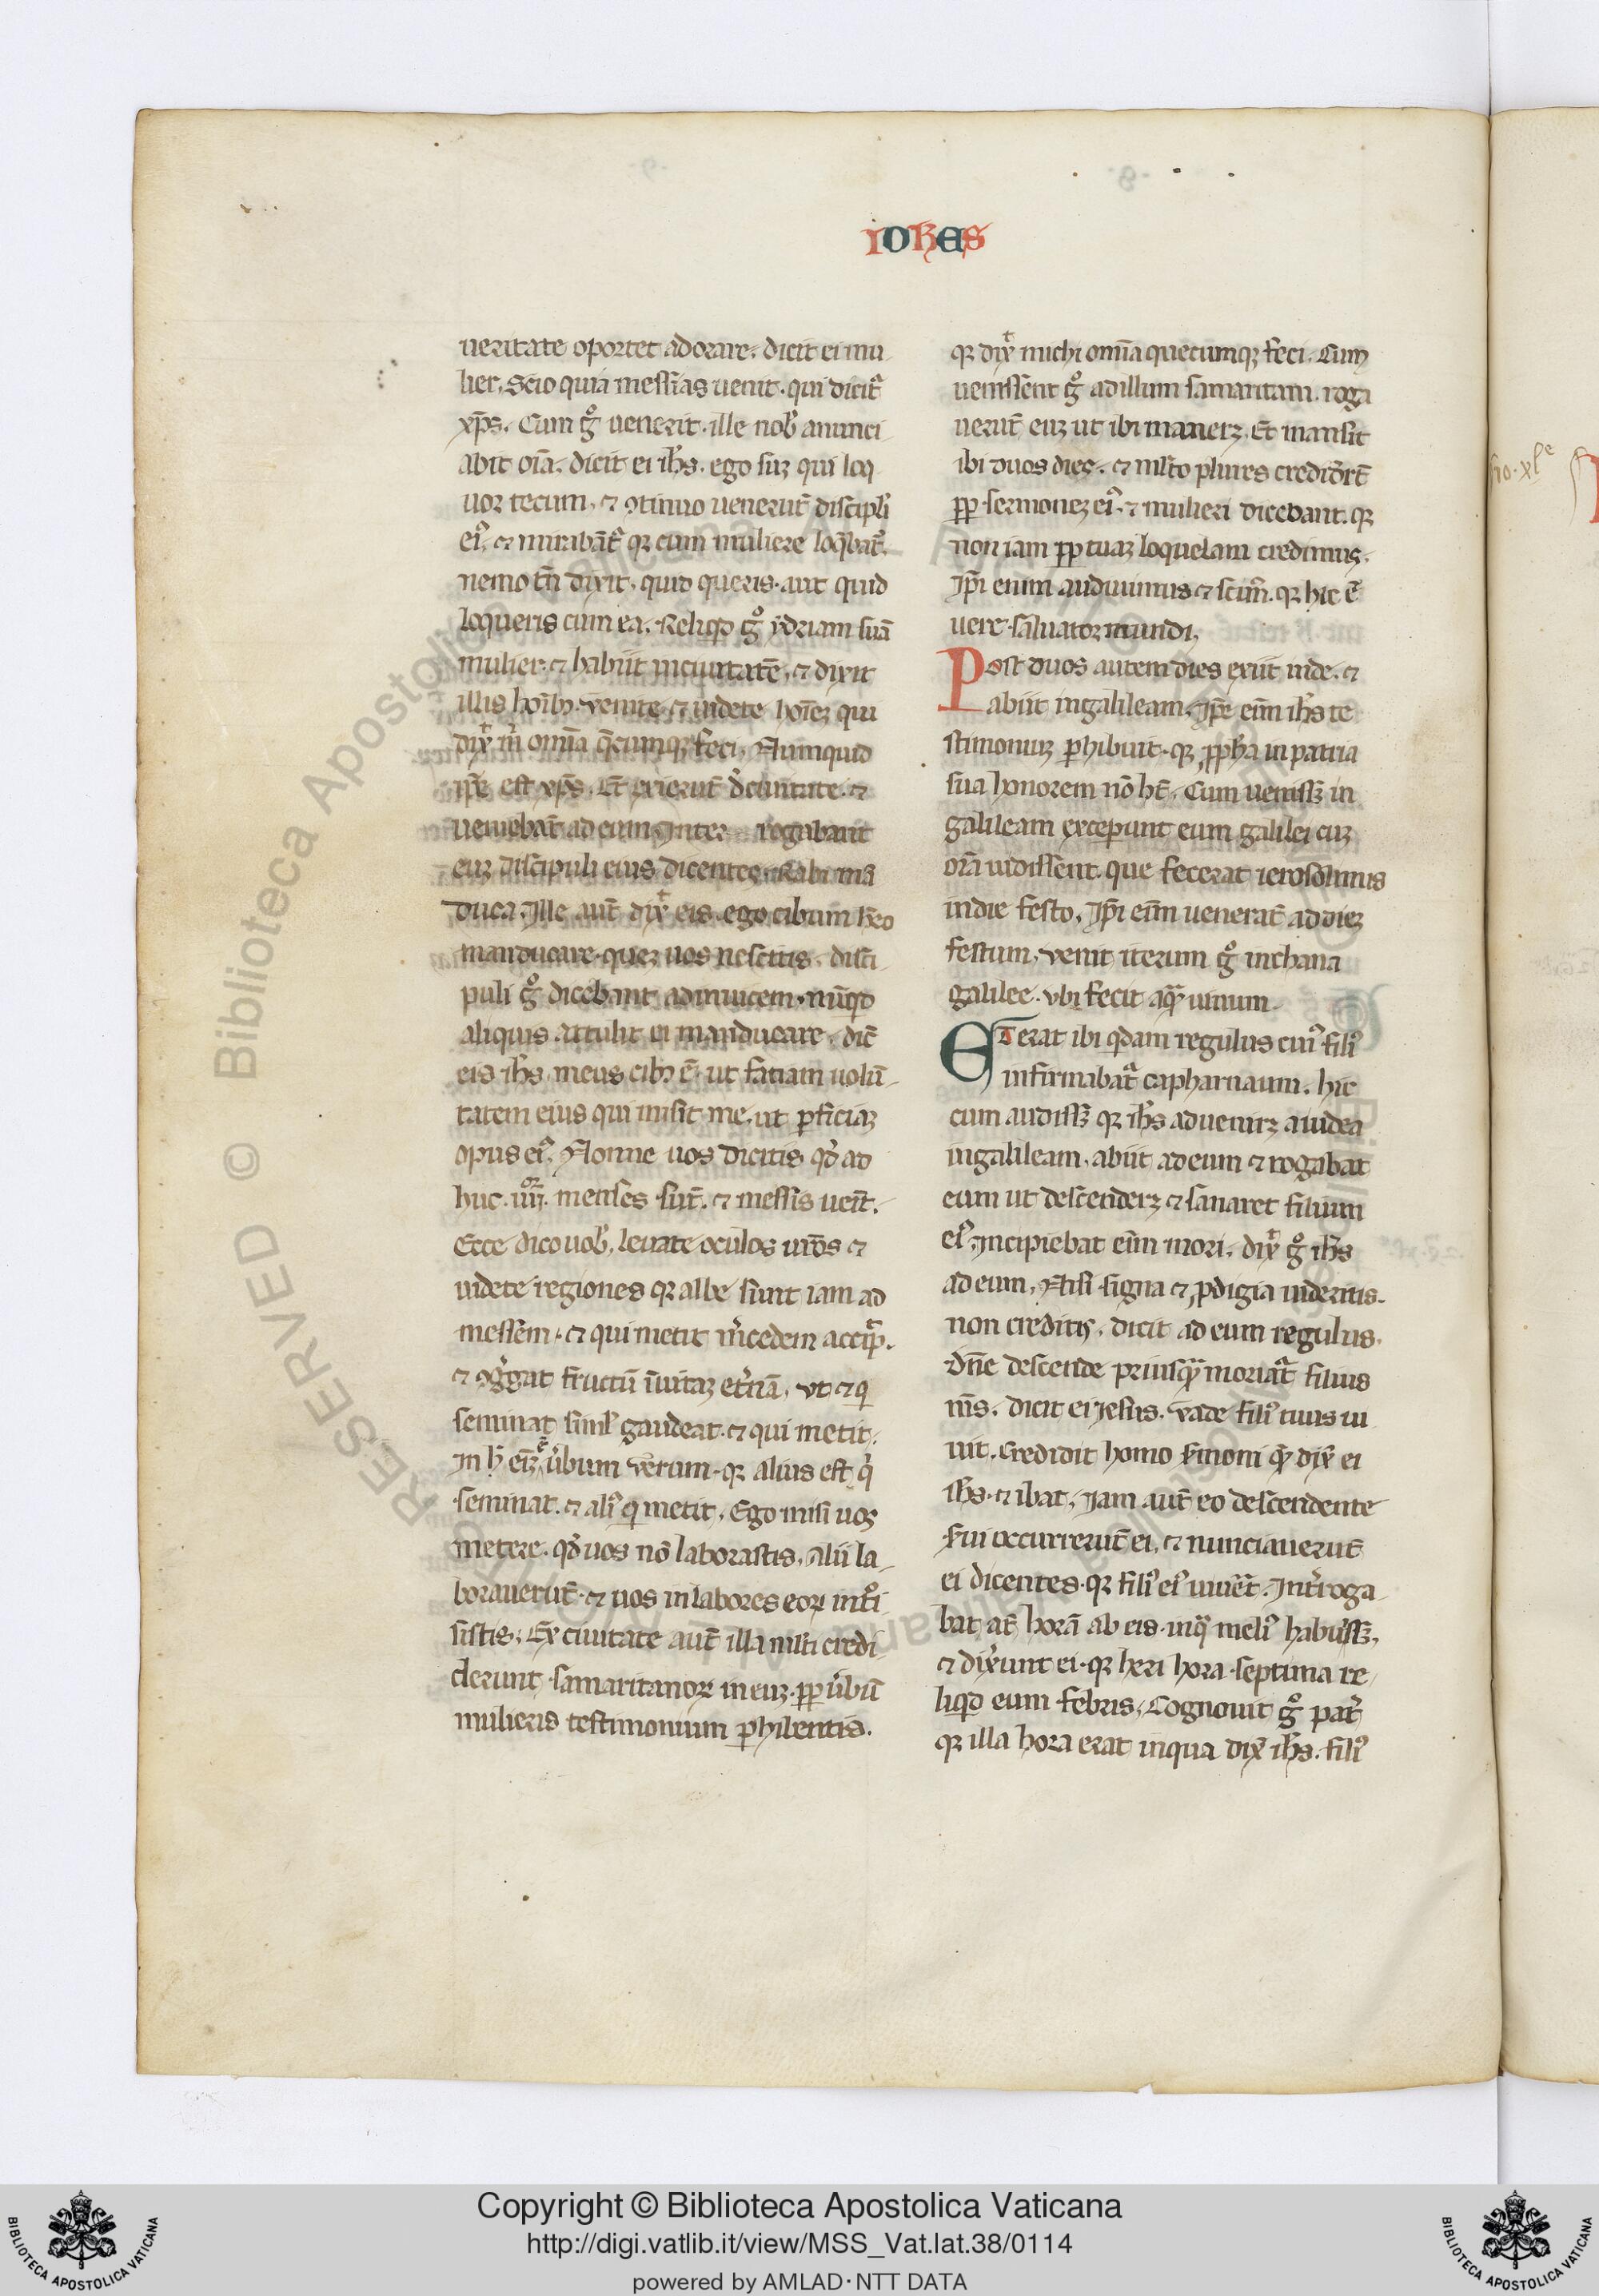 ioh̅es
ueritate oportet adorare. dicit ei mu
lier. Scio quia messias uenit. qui dicit᷑
xp̅s. Cum gͦ uenerit. ille nob̅ anunci
abit oi̅a. dicit ei ih̅s. ego suꝫ qui loq
uor tecum. ⁊ ꝯtinuo uenerut̅ discipl̅i
ei᷒. ⁊ mirabat̅᷑ qꝛ cum muliere loq̅bat᷑.
nemo tn̅ dixit. quid queris. aut quid
loqueris cum ea. Reliqͥd gͦ ydriam sua̅
mulier. ⁊ habiit inciuitate̅. ⁊ dixit
illis ho̅ibꝫ. venite ⁊ uidete ho̅ieꝫ qui
dix̅ m̅ omi̅a q̅cumqꝫ feci. Numquid
ip̅e est xp̅s. Et exierut̅ deciuitate. ⁊
ueniebat̅ ad eum. Inter rogabant
euꝫ discipuli eius dicentes. Rabi ma̅
duca. Ille aut̅ dix̅ eis. ego cibum h̅eo
manducare. queꝫ uos nescitis. disci
puli gͦ dicebant adinuicem. nu̅qͥd
aliquis attulit ei manducare. dic̅
eis ih̅s. meus cibꝫ e̅. ut fatiam uolu̅
tatem eius qui misit me. ut ꝑficiaꝫ
opus ei᷒. Nonne uos dicitis qd̅ ad
huc .iiii. menses sut̅. ⁊ messis uei̅t.
Ecce dico uob̅. leuate oculos ur̅os ⁊
uidete regiones qꝛ albe sunt iam ad
messem. ⁊ qui metit m̅cedem accip̅.
⁊ ꝯg̅gat fructu̅ i̅uitaꝫ et̅na̅. vt ⁊ qͥ
seminat siml̅ gaudeat. ⁊ qui metit.
In h̅ ei̅ꝫ e̅ ub̅um verum. qꝛ alius est qͥ
seminat. ⁊ ali᷒ qͥ metit. Ego misi uos
metere. qd̅ uos no̅ laborastis. Alii la
borauerut̅. ⁊ uos in labores eoꝝ int̅i
sistis. Ex ciuitate aut̅ illa ml̅ti credi
derunt samaritanoꝝ in euꝫ. ꝓp ub̅u̅
mulieris testimonium ꝑhibentis.
qꝛ dix̅ michi omi̅a quecumqꝫ feci. Cum
uenissent gͦ ad illum samaritani. roga
uerut̅ euꝫ ut ibi manerꝫ. Et mansit
ibi duos dies. ⁊ ml̅to plures credidert̅
ꝓp sermoneꝫ ei᷒. ⁊ mulieri dicebant. qꝛ
non iam ꝓp tuaꝫ loquelam credimus.
Ip̅i enim audiuimus ⁊ scim᷒. qꝛ hic e̅
uere saluator mundi.
Post duos autem dies exiit inde. ⁊
abiit ingalileam. Ip̅e eni̅ ih̅s te
stimoniuꝫ ꝑhibuit. qꝛ ꝓph̅a in patria
sua honorem no̅ h̅t. Cum uenissꝫ in
galileam exceperunt eum galilei cuꝫ
oi̅a uidissent. que fecerat ierosolimis
indie festo. Ip̅i eni̅ uenerat̅ ad dieꝫ
festum. venit iterum gͦ inchana
galilee. vbi fecit aqͣ̅ uinum.
ET erat ibi qͥdam regulus cui᷒ fili᷒
infirmabat᷑ capharnaum. hic
cum audissꝫ qꝛ ih̅s aduenirꝫ aiudea
ingalileam. abiit ad eum ⁊ rogabat
eum ut descenderꝫ ⁊ sanaret filium
ei᷒. Incipiebat eni̅ mori. dix̅ gͦ ih̅s
ad eum. Nisi signa ⁊ ꝓdigia uideritis.
non creditis. dicit ad eum regulus.
dn̅e descende priusqͣ̅ moriat᷑ filius
m̅s. dicit ei jesus. vade fili᷒ tuus ui
uit. Credidit homo s̅moni que̅ dix̅ ei
ih̅s. ⁊ ibat. Jam aut̅ eo descendente
s̅ui occurrerut̅ ei. ⁊ nunciauerut̅
ei dicentes. qꝛ fili᷒ ei᷒ uiuet̅. Int̅roga
bat at̅ hora̅ ab eis. inqͣ meli᷒ habuissꝫ.
⁊ dix̅unt ei. qꝛ heri hora septima re
liqͥd eum febris. Cognouit gͦ pat̅
qꝛ illa hora erat inqua dix̅ ih̅s. fili᷒
Copyright © Biblioteca Apostolica Vaticana
http://digi.vatlib.it/view/MSS_Vat.lat.38/0114
powered by AMLAD·NTT DATA
BIBLIOTECA APOSTOLICA VATICANA
BIBLIOTECA APOSTOLICA VATICANA